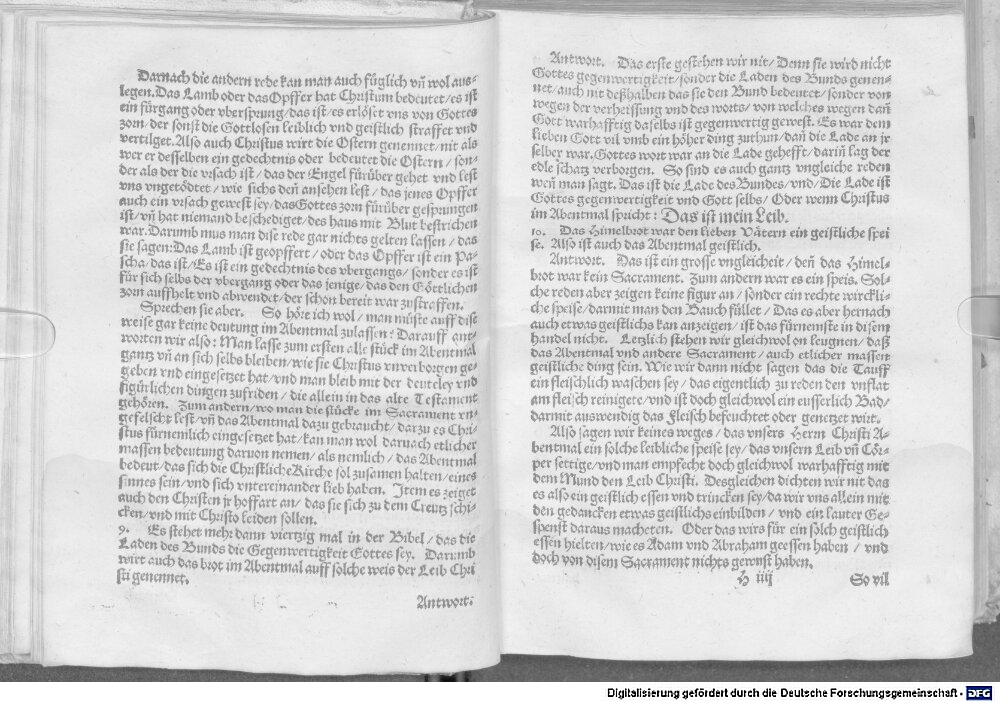 Darnach die andern rede kan man auch füglich vñ wol aus-
legen. Das Lamb oder das Opffer hat Christum bedeutet/ es ist
ein fürgang oder vbersprung/ das ist/ es erlöset vns von Gottes
zorn/ der sonst die Gottlosen leiblich vnd geistlich straffet vnd
vertilget. Also auch Christus wirt die Ostern genennet/ nit als
wer er desselben ein gedechtnis oder bedeutet die Ostern/ son-
der als der die vrsach ist/ das der Engel fürüber gehet vnd lest
vns vngetödtet/ wie sichs den ansehen lest/ das jenes Opffer
auch ein vrsach gewest sey/ das Gottes zorn fürüber gesprungen
ist/ vñ hat niemand beschediget/ des haus mit Blut bestrichen
war. Darumb mus man dise rede gar nichts gelten lassen/ das
sie sagen: Das Lamb ist geopffert/ oder das Opffer ist ein Pa-
scha/ das ist/ Es ist ein gedechtnis des vbergangs/ sonder es ist
für sich selbs der vbergang oder das jenige/ das den Göttlichen
zorn auffhelt vnd abwendet/ der schon bereit war zustraffen.
Sprechen sie aber. So höre ich wol/ man müste auff dise
weise gar keine deutung im Abentmal zulassen: Darauff ant-
worten wir also: Man lasse zum ersten alle stück im Abentmal
gantz vñ an sich selbs bleiben/ wie sie Christus vnverborgen ge-
geben vnd eingesetzet hat/ vnd man bleib mit der deuteley vnd
figürlichen dingen zufriden/ die allein in das alte Testament
gehören. Zum andern/ wo man die stücke im Sacrament vn-
gefelscht lest/ vñ das Abentmal dazu gebraucht/ darzu es Chri-
stus fürnemlich eingesetzet hat/ kan man wol darnach etlicher
massen bedeutung daruon nemen/ als nemlich/ das Abentmal
bedeut/ das sich die Christliche Kirche sol zusamen halten/ eines
sinnes sein/ vnd sich vntereinander lieb haben. Item es zeiget
auch den Christen jr hoffart an/ das sie sich zu dem Creutz schi-
cken/ vnd mit Christo leiden sollen.
9. Es stehet mehr dann viertzig mal in der Bibel/ das die
Laden des Bunds die Gegenwertigkeit Gottes sey. Darumb
wirt auch das brot im Abentmal auff solche weis der Leib Chri
sti genennet.
Antwort:
Antwort. Das erste gestehen wir nit/ Denn sie wird nicht
Gottes gegenwertigkeit/ sonder die Laden des Bunds genen-
net/ auch mit deßhalben das sie den Bund bedeutet/ sonder von
wegen der verheissung vnd des worts/ von welches wegen dañ
Gott warhafftig daselbs ist gegenwertig gewest. Es war dem
lieben Gott vil vmb ein höher ding zuthun/ dañ die Lade an jr
selber war. Gottes wort war an die Lade gehefft/ dariñ lag der
edle schatz verborgen. So sind es auch gantz vngleiche reden
weñ man sagt. Das ist die Lade des Bundes/ vnd/ Die Lade ist
Gottes gegenwertigkeit vnd Gott selbs/ Oder wenn Christus
im Abentmal spricht: Das ist mein Leib.
10. Das Himelbrot war den lieben Vätern ein geistliche spei
se. Also ist auch das Abentmal geistlich.
Antwort. Das ist ein grosse vngleicheit/ deñ das Himel-
brot war kein Sacrament. Zum andern war es ein speis. Sol-
che reden aber zeigen keine figur an/ sonder ein rechte wirckli-
che speise/ darmit man den Bauch füllet/ Das es aber hernach
auch etwas geistlichs kan anzeigen/ ist das fürnemste in disem
handel nicht. Letzlich stehen wir gleichwol on leugnen/ daß
das Abentmal vnd andere Sacrament/ auch etlicher massen
geistliche ding sein. Wie wir dann nicht sagen das die Tauff
ein fleischlich waschen sey/ das eigentlich zu reden den vnflat
am fleisch reinigete/ vnd ist doch gleichwol ein eusserlich Bad/
darmit auswendig das Fleisch befeuchtet oder genetzet wirt.
Also sagen wir keines weges/ das vnsers Herrn Christi A-
bentmal ein solche leibliche speise sey/ das vnsern Leib vñ Cör-
per settige/ vnd man empfecht doch gleichwol warhafftig mit
dem Mund den Leib Christi. Desgleichen dichten wir nit das
es also ein geistlich essen vnd trincken sey/ da wir vns allein mit
den gedancken etwas geistlichs einbilden/ vnd ein lauter Ge-
spenst daraus macheten. Oder das wirs für ein solch geistlich
essen hielten/ wie es Adam vnd Abraham geessen haben/ vnd
doch von disem Sacrament nichts gewust haben.
H iiij So vil
Digitalisierung gefördert durch die Deutsche Forschungsgemeinschaft - DFG